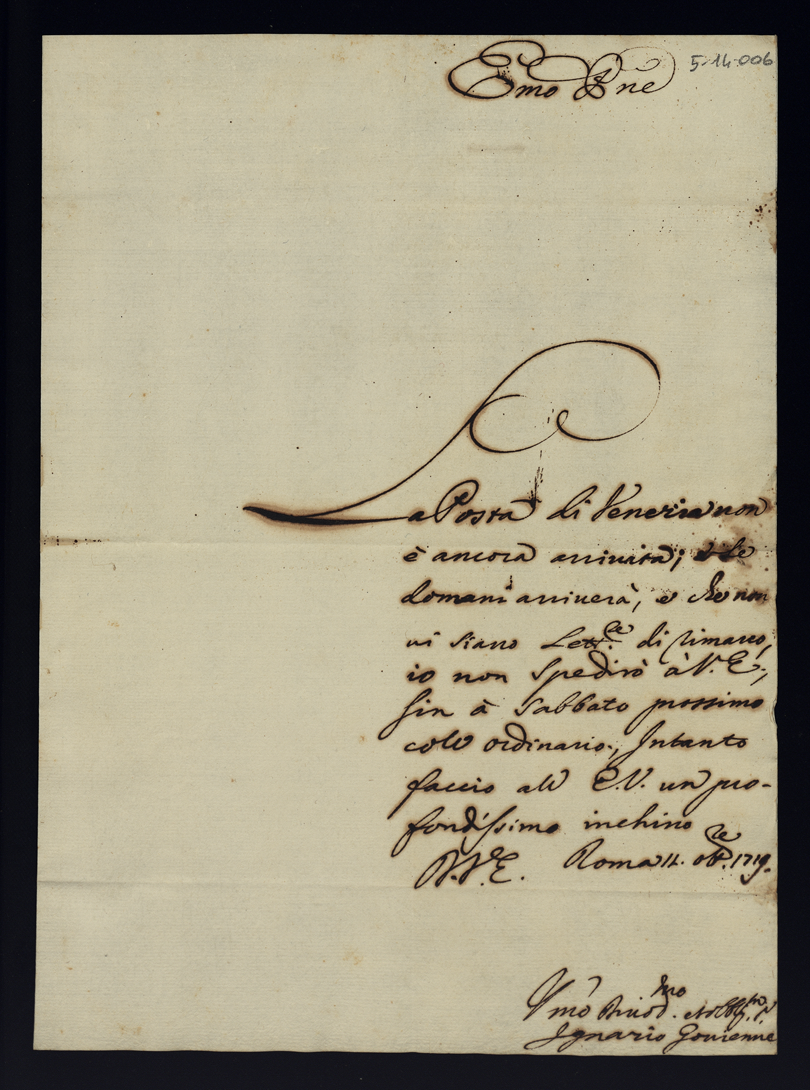 5-14-006
Emo Pñe
La Posta di Venezia non
è ancora arrivata; e se
domani arriverà, e che non
vi siano Lett.re di rimarco,
io non spedirò à V. E.,
sin à Sabbato prossimo
coll' ordinario; Intanto
faccio all' E.V. un pro-
fondissimo inchino
D. V. E. Roma 11. obre. 1719.
Vmo Divod.mo et obblig.mo S.
Ignazio